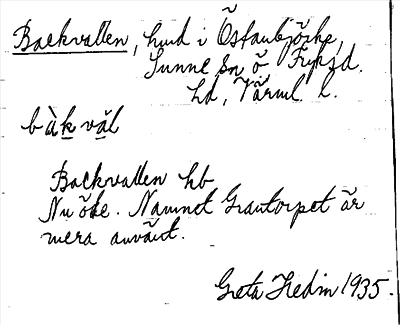 Backvallen, hmd i Östanbjörke,
Sunne sn Ö Fryksd.
hd, Värml. l.
bàk văl
Backvallen hb
Nu öde. Namnet Grantorpet är
mera använt.
Greta Hedin 1935.